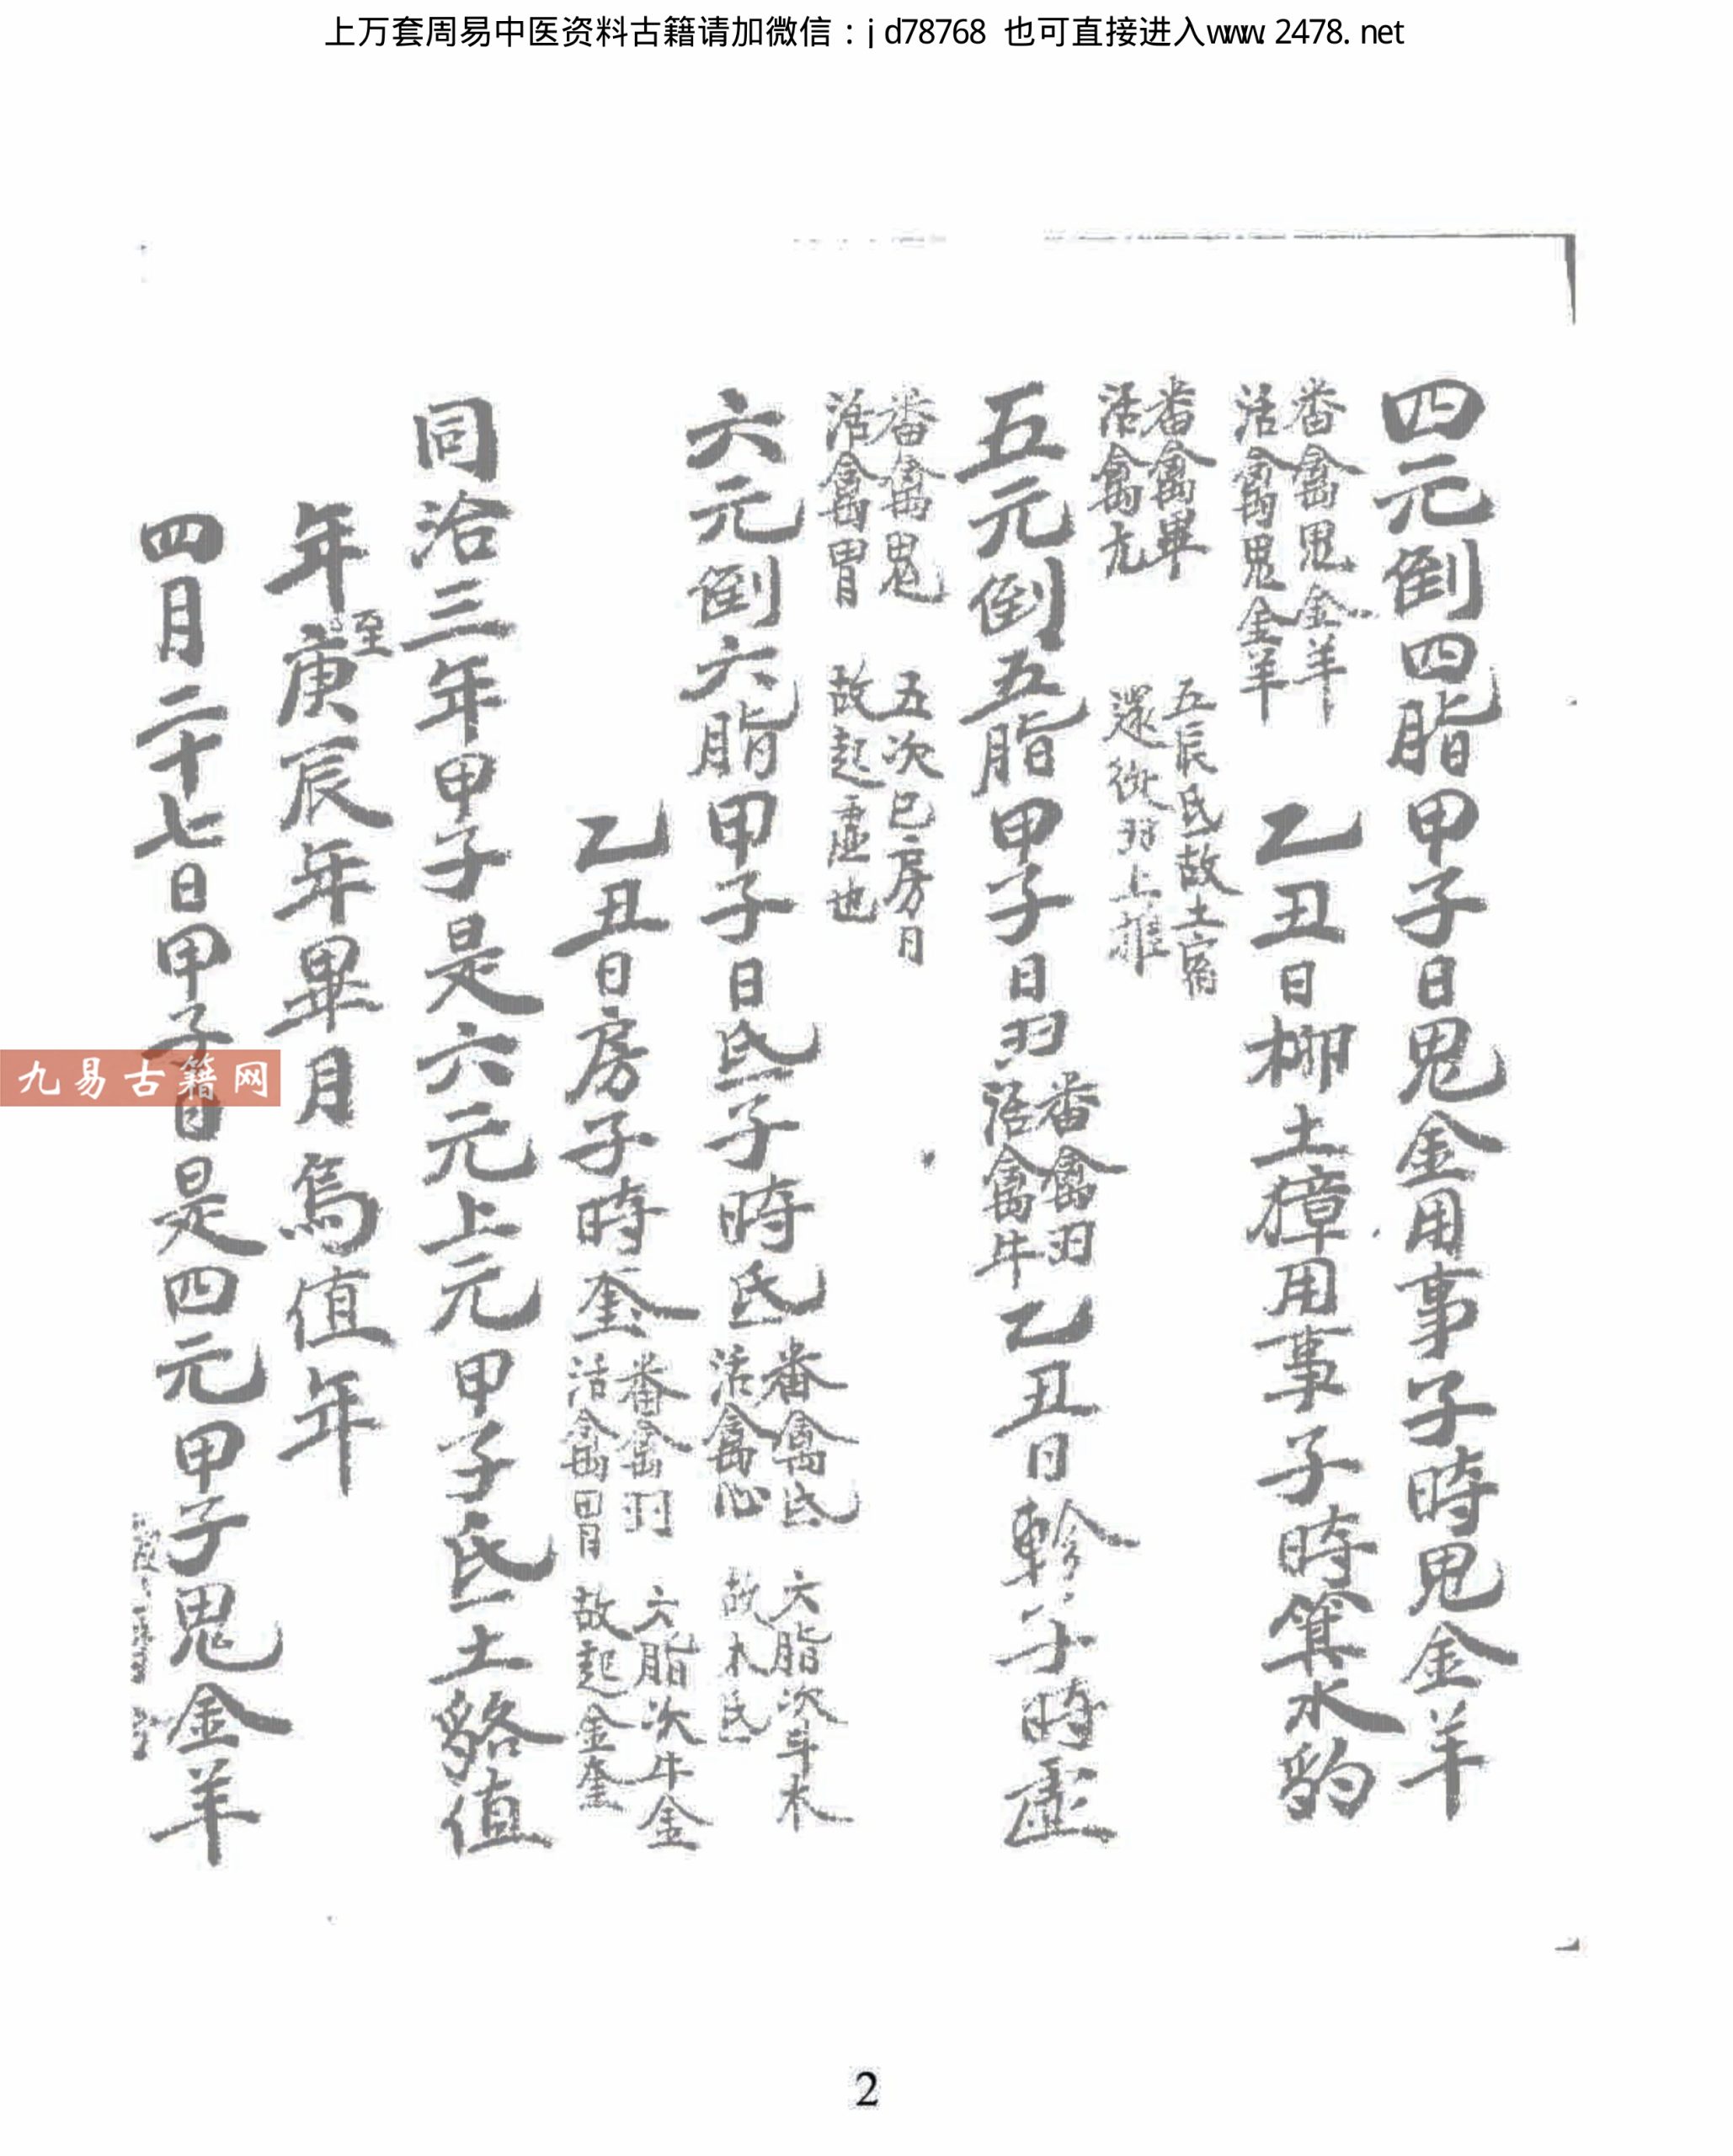 上万套周易中医资料古籍请加微信：jd78768 也可直接进入www.2478.net
四元倒四脂甲子日鬼金用事子時鬼金羊
番禽鬼金羊
活禽鬼金羊
乙丑日柳土獐用事子時箕水豹
番禽畢
活禽亢
五辰氐故土宿
還從羽上推
五元倒五脂甲子日羽
番禽羽
活禽牛
乙丑日軫子時虛
番禽鬼
活禽胃
五次巳房日
故起虛也
六元倒六脂甲子日氐子時氐
番禽氐
活禽心
六脂次斗木
故木氐
乙丑日房子時奎
番禽羽
活禽胃
六脂次牛金
故起金奎
同治三年甲子是六元上元甲子氐土貉值
年至庚辰年畢月烏值年
四月二十七日甲子日是四元甲子鬼金羊
九易古籍网
2